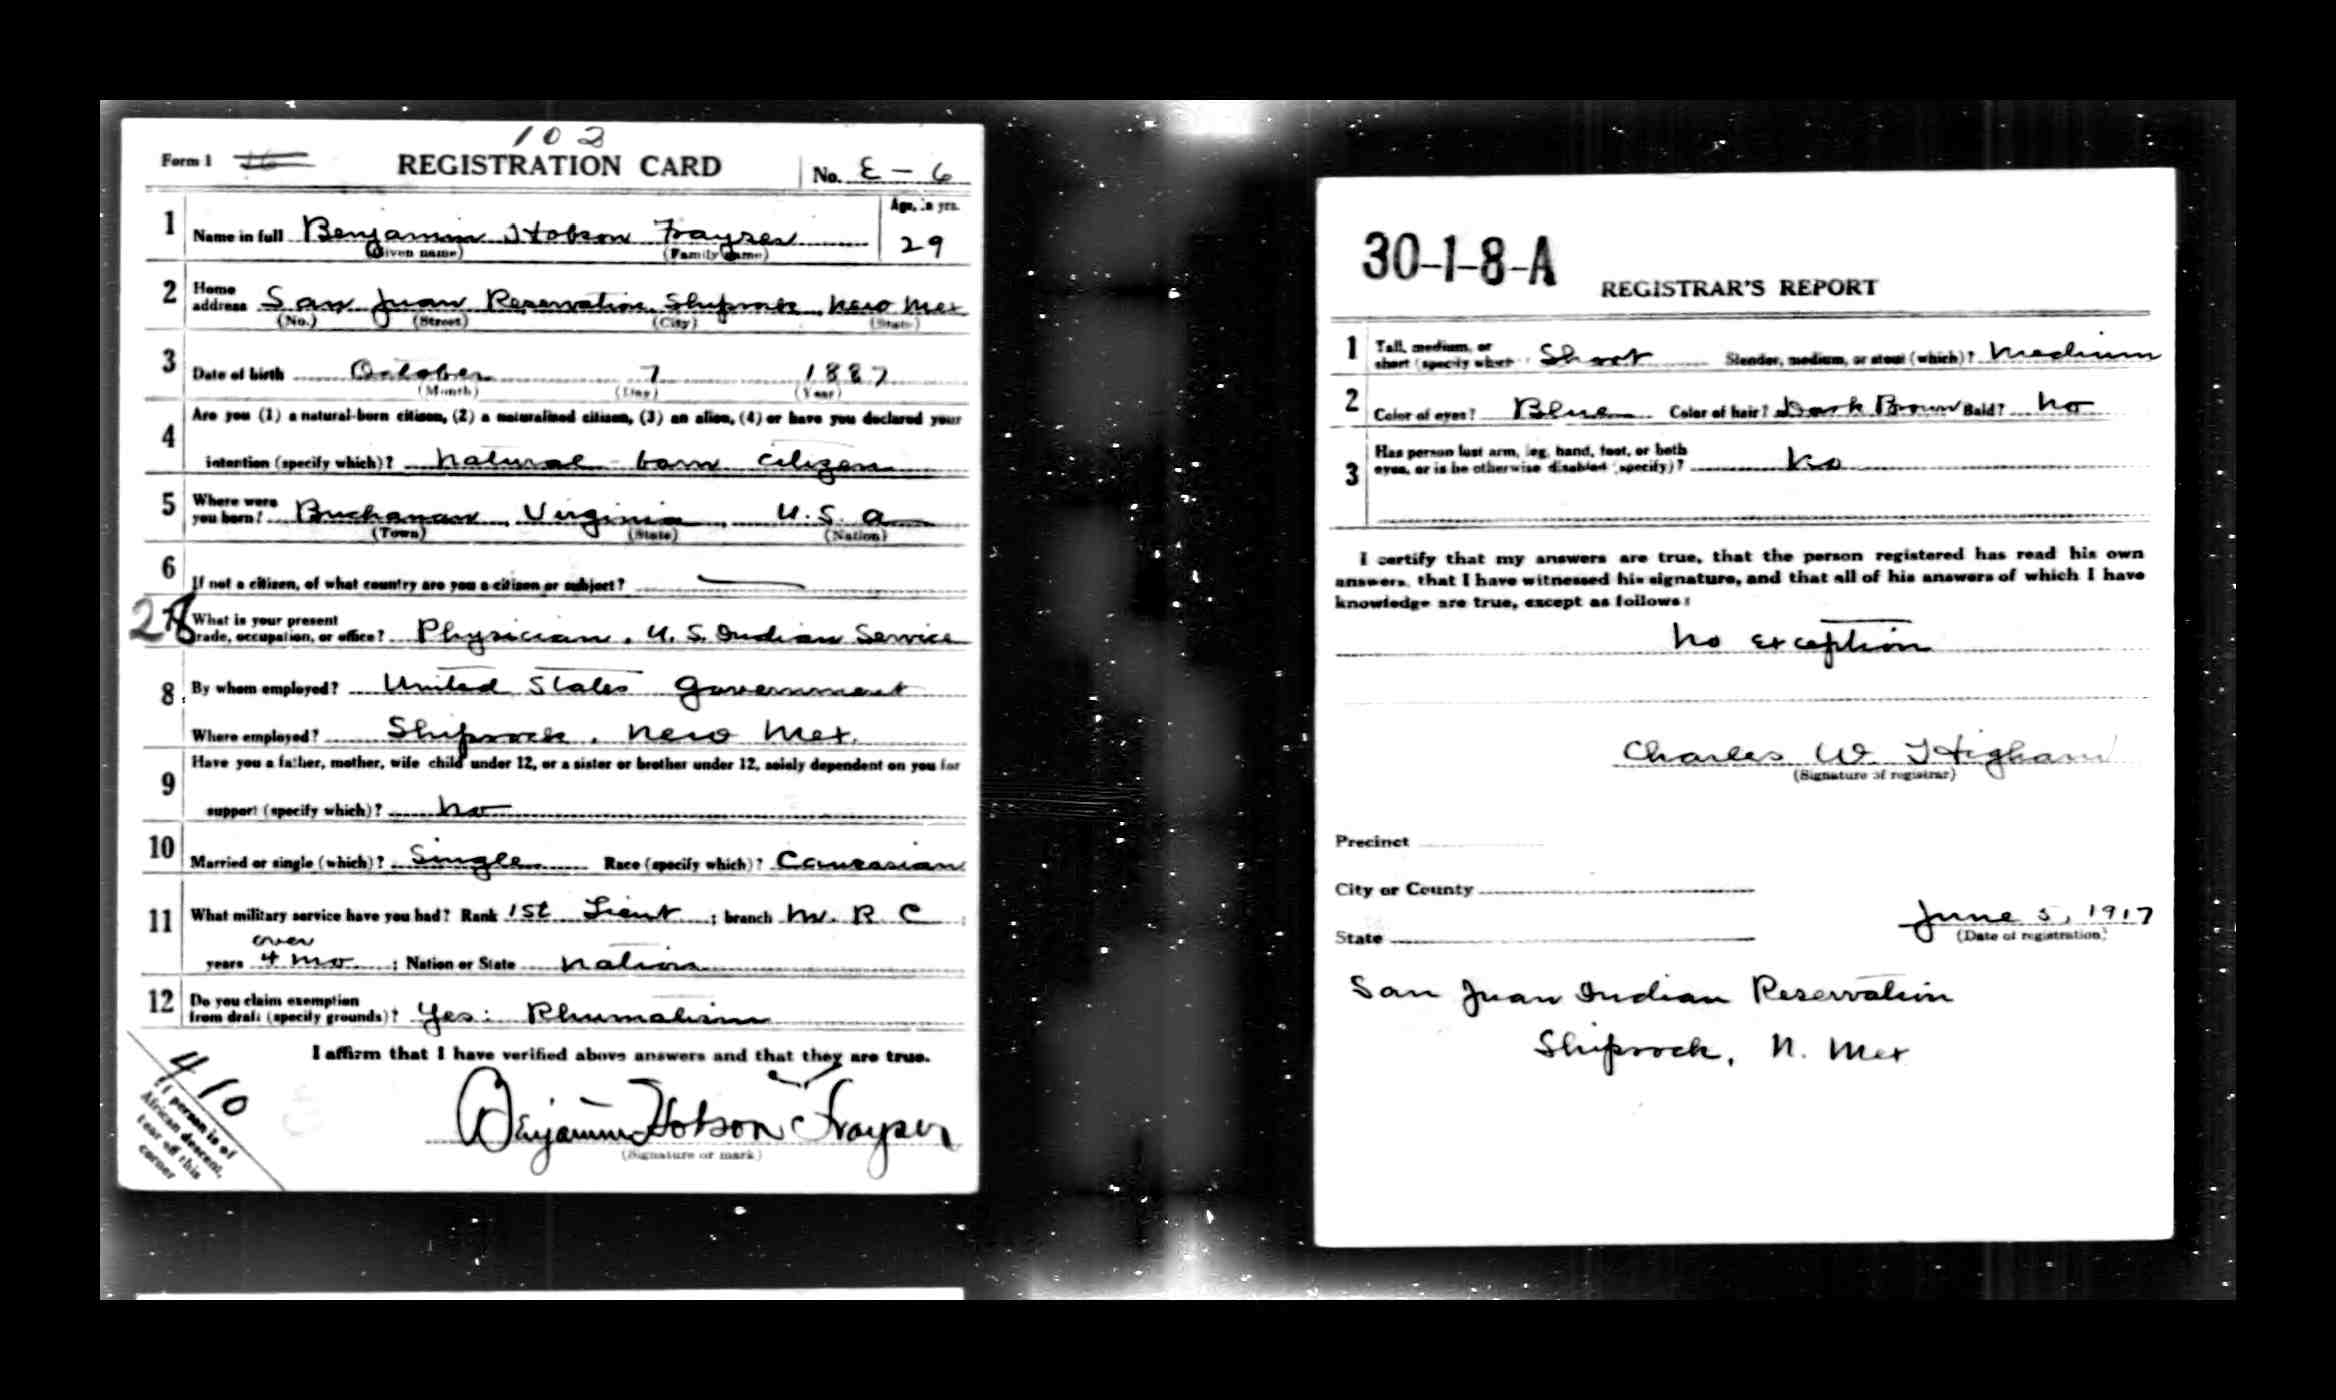 102
Form 1 16 REGISTRATION CARD No. E - 6
1 Name in full Benjamin Hobson Frayser Age, in yrs. 29
(Given name) (Family name)
2 Home address San Juan Reservation, Shiprock, New Mex
(No.) (Street) (City) (State)
3 Date of birth October 7 1887
(Month) (Day) (Year)
4 Are you (1) a natural-born citizen, (2) a naturalized citizen, (3) an alien, (4) or have you declared your
intention (specify which)? Natural-born citizen
5 Where were you born? Buchanan, Virginia, U.S.A
(Town) (State) (Nation)
6 If not a citizen, of what country are you a citizen or subject?
28 What is your present
trade, occupation, or office? Physician, U.S. Indian Service
8 By whom employed? United States Government
Where employed? Shiprock, New Mex.
9 Have you a father, mother, wife child under 12, or a sister or brother under 12, solely dependent on you for
support (specify which)? No
10 Married or single (which)? Single Race (specify which)? Caucasian
11 What military service have you had? Rank 1st Lieut ; branch M. R C
over
years 4 mo ; Nation or State Nation
12 Do you claim exemption
from draft (specify grounds)? Yes: Rhumatism
I affirm that I have verified above answers and that they are true.
Benjamin Hobson Frayser
(Signature or mark)
410
If person is of
African descent,
tear off this
corner
30-1-8-A
REGISTRAR'S REPORT
1 Tall, medium, or
short (specify which) Short Slender, medium, or stout (which)? Medium
2 Color of eyes? Blue Color of hair? Dark Brown Bald? No
3 Has person lost arm, leg, hand, foot, or both
eyes, or is he otherwise disabled (specify)? No
I certify that my answers are true, that the person registered has read his own
answers, that I have witnessed his signature, and that all of his answers of which I have
knowledge are true, except as follows:
No exception
Charles W Higham
(Signature of registrar)
Precinct
City or County
State
June 5, 1917
(Date of registration)
San Juan Indian Reservation
Shiprock, N. Mex